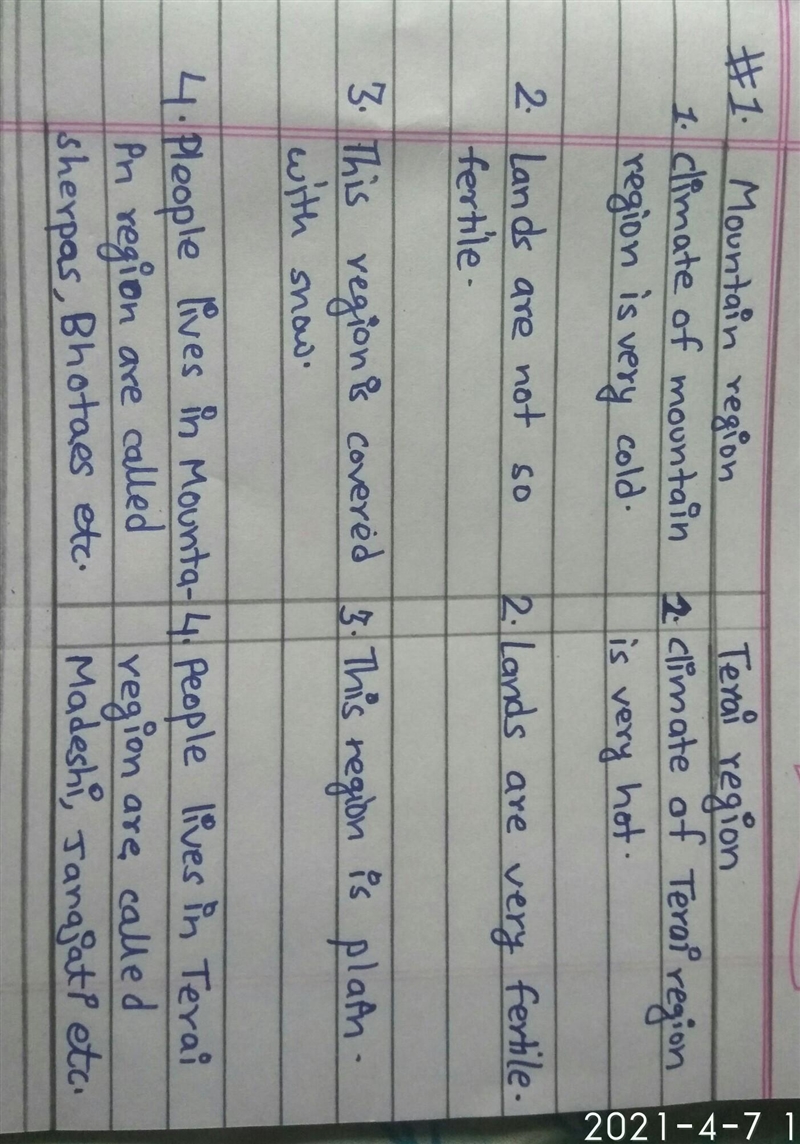 #1. Mountain region Terai region
1. climate of mountain 1. climate of Terai region
region is very cold. is very hot.
2. Lands are not so 2. Lands are very fertile.
fertile.
3. This region is covered 3. This region is plain.
with snow.
4. Pleople lives in Mounta- 4. People lives in Terai
in region are called region are, called
sherpas, Bhotaes etc. Madeshi, Janajati etc.
2021-4-7 1